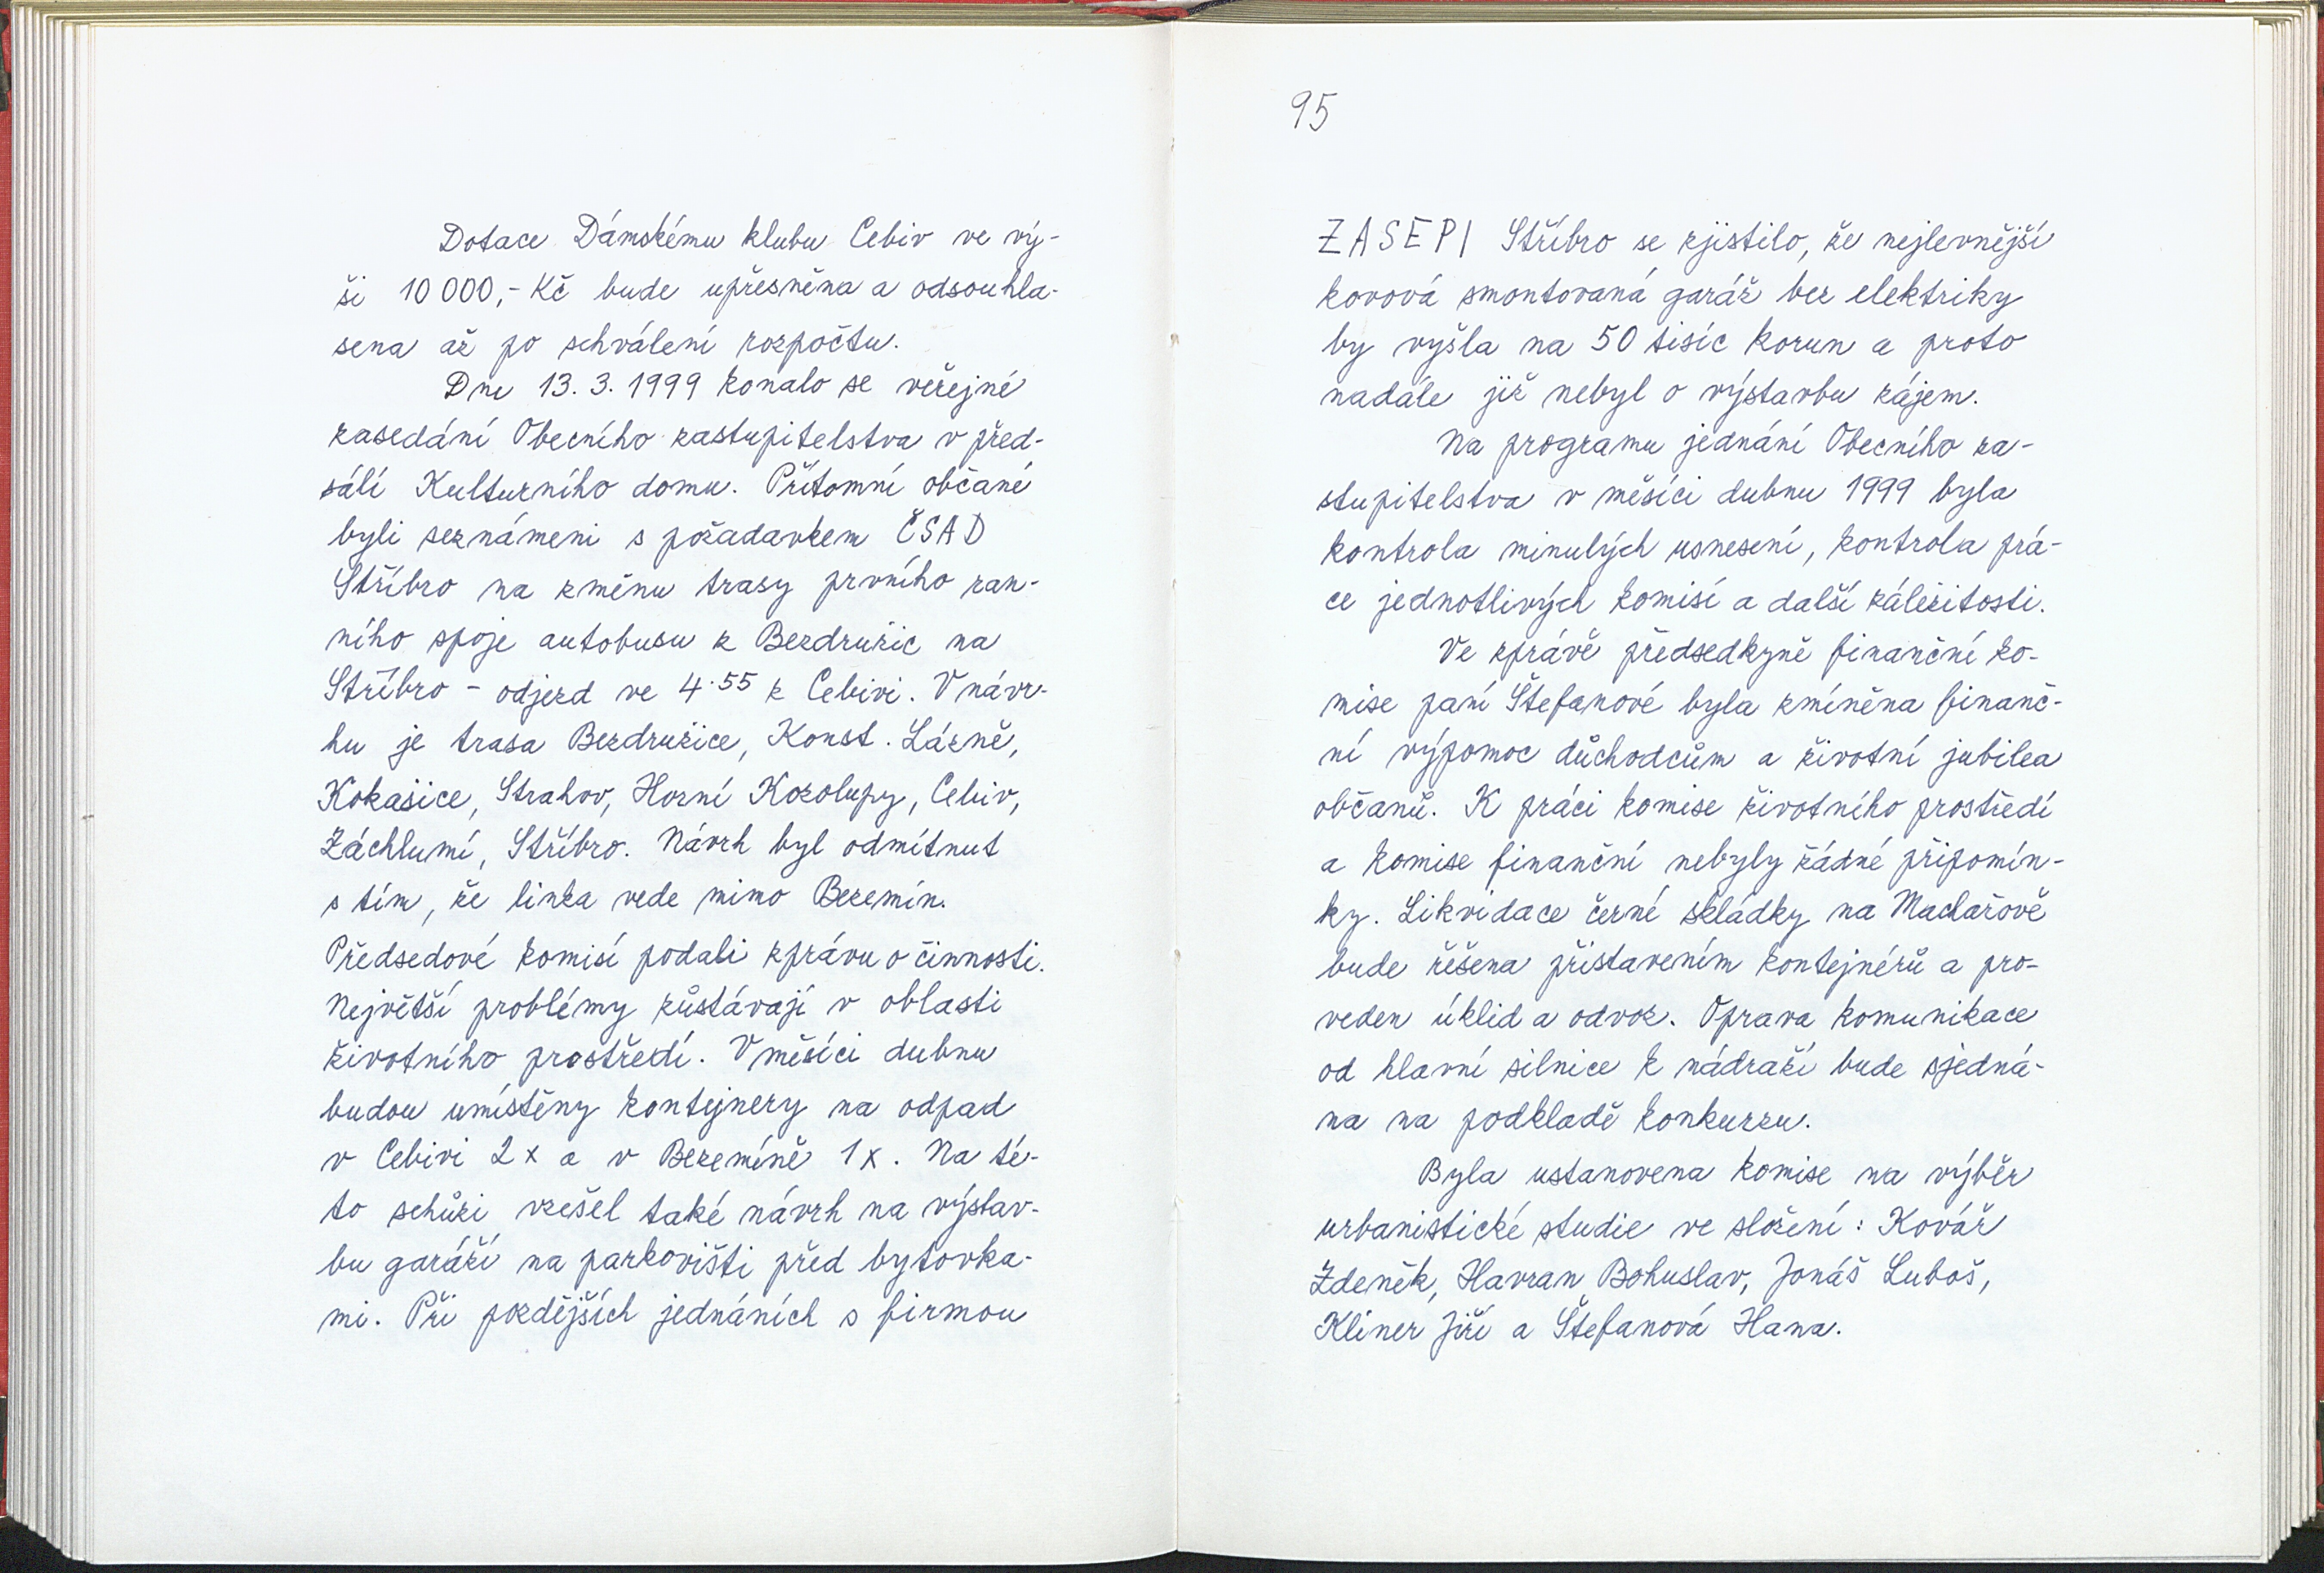 Dotace Dámskému klubu Cebiv ve vý-
ši 10 000,- Kč bude upřesněna a odsouhla-
sena až po schválení rozpočtu.
Dne 13. 3. 1999 konalo se veřejné
zasedání Obecního zastupitelstva v před-
sálí Kulturního domu. Přítomní občané
byli seznámeni s požadavkem ČSAD
Stříbro na změnu trasy prvního ran-
ního spoje autobusu z Bezdružic na
Stříbro - odjezd ve 4.55 z Cebivi. V návr-
hu je trasa Bezdružice, Konst. Lázně,
Kokašice, Strahov, Horní Kozolupy, Cebiv,
Záchlumí, Stříbro. Návrh byl odmítnut
s tím, že linka vede mimo Bezemín.
Předsedové komisí podali zprávu o činnosti.
Největší problémy zůstávají v oblasti
životního prostředí. V měsíci dubnu
budou umístěny kontejnery na odpad
v Cebivi 2x a v Bezemíně 1x. Na té-
to schůzi vzešel také návrh na výstav-
bu garáží na parkovišti před bytovka-
mi. Při pozdějších jednáních s firmou
95
ZASEPI Stříbro se zjistilo, že nejlevnější
kovová smontovaná garáž bez elektriky
by vyšla na 50 tisíc korun a proto
nadále již nebyl o výstavbu zájem.
Na programu jednání Obecního za-
stupitelstva v měsíci dubnu 1999 byla
kontrola minulých usnesení, kontrola prá-
ce jednotlivých komisí a další záležitosti.
Ve zprávě předsedkyně finanční ko-
mise paní Štefanové byla zmíněna finanč-
ní výpomoc důchodcům a životní jubilea
občanů. K práci komise životního prostředí
a komise finanční nebyly žádné připomín-
ky. Likvidace černé skládky na Machařově
bude řešena přistavením kontejnérů a pro-
veden úklid a odvoz. Oprava komunikace
od hlavní silnice k nádraží bude sjedná-
na na podkladě konkurzu.
Byla ustanovena komise na výběr
urbanistické studie ve složení: Kovář
Zdeněk, Havran Bohuslav, Jonáš Luboš,
Kliner Jiří a Štefanová Hana.